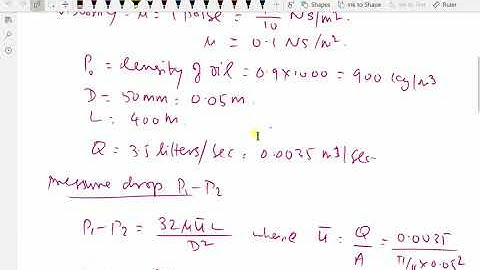 Shapes Ink to Shape Ruler
μ = 1 poise = 1/10 NS/m².
μ = 0.1 NS/m².
P₀ = density of oil = 0.9×1000 = 900 kg/m3
D = 50mm = 0.05m.
L = 400m.
Q = 3.5 liters/sec = 0.0035 m3/sec.
pressure drop P₁-P₂
P₁-P₂ = 32μūL/D² where ū = Q/A = 0.0035/π/4×0.05²